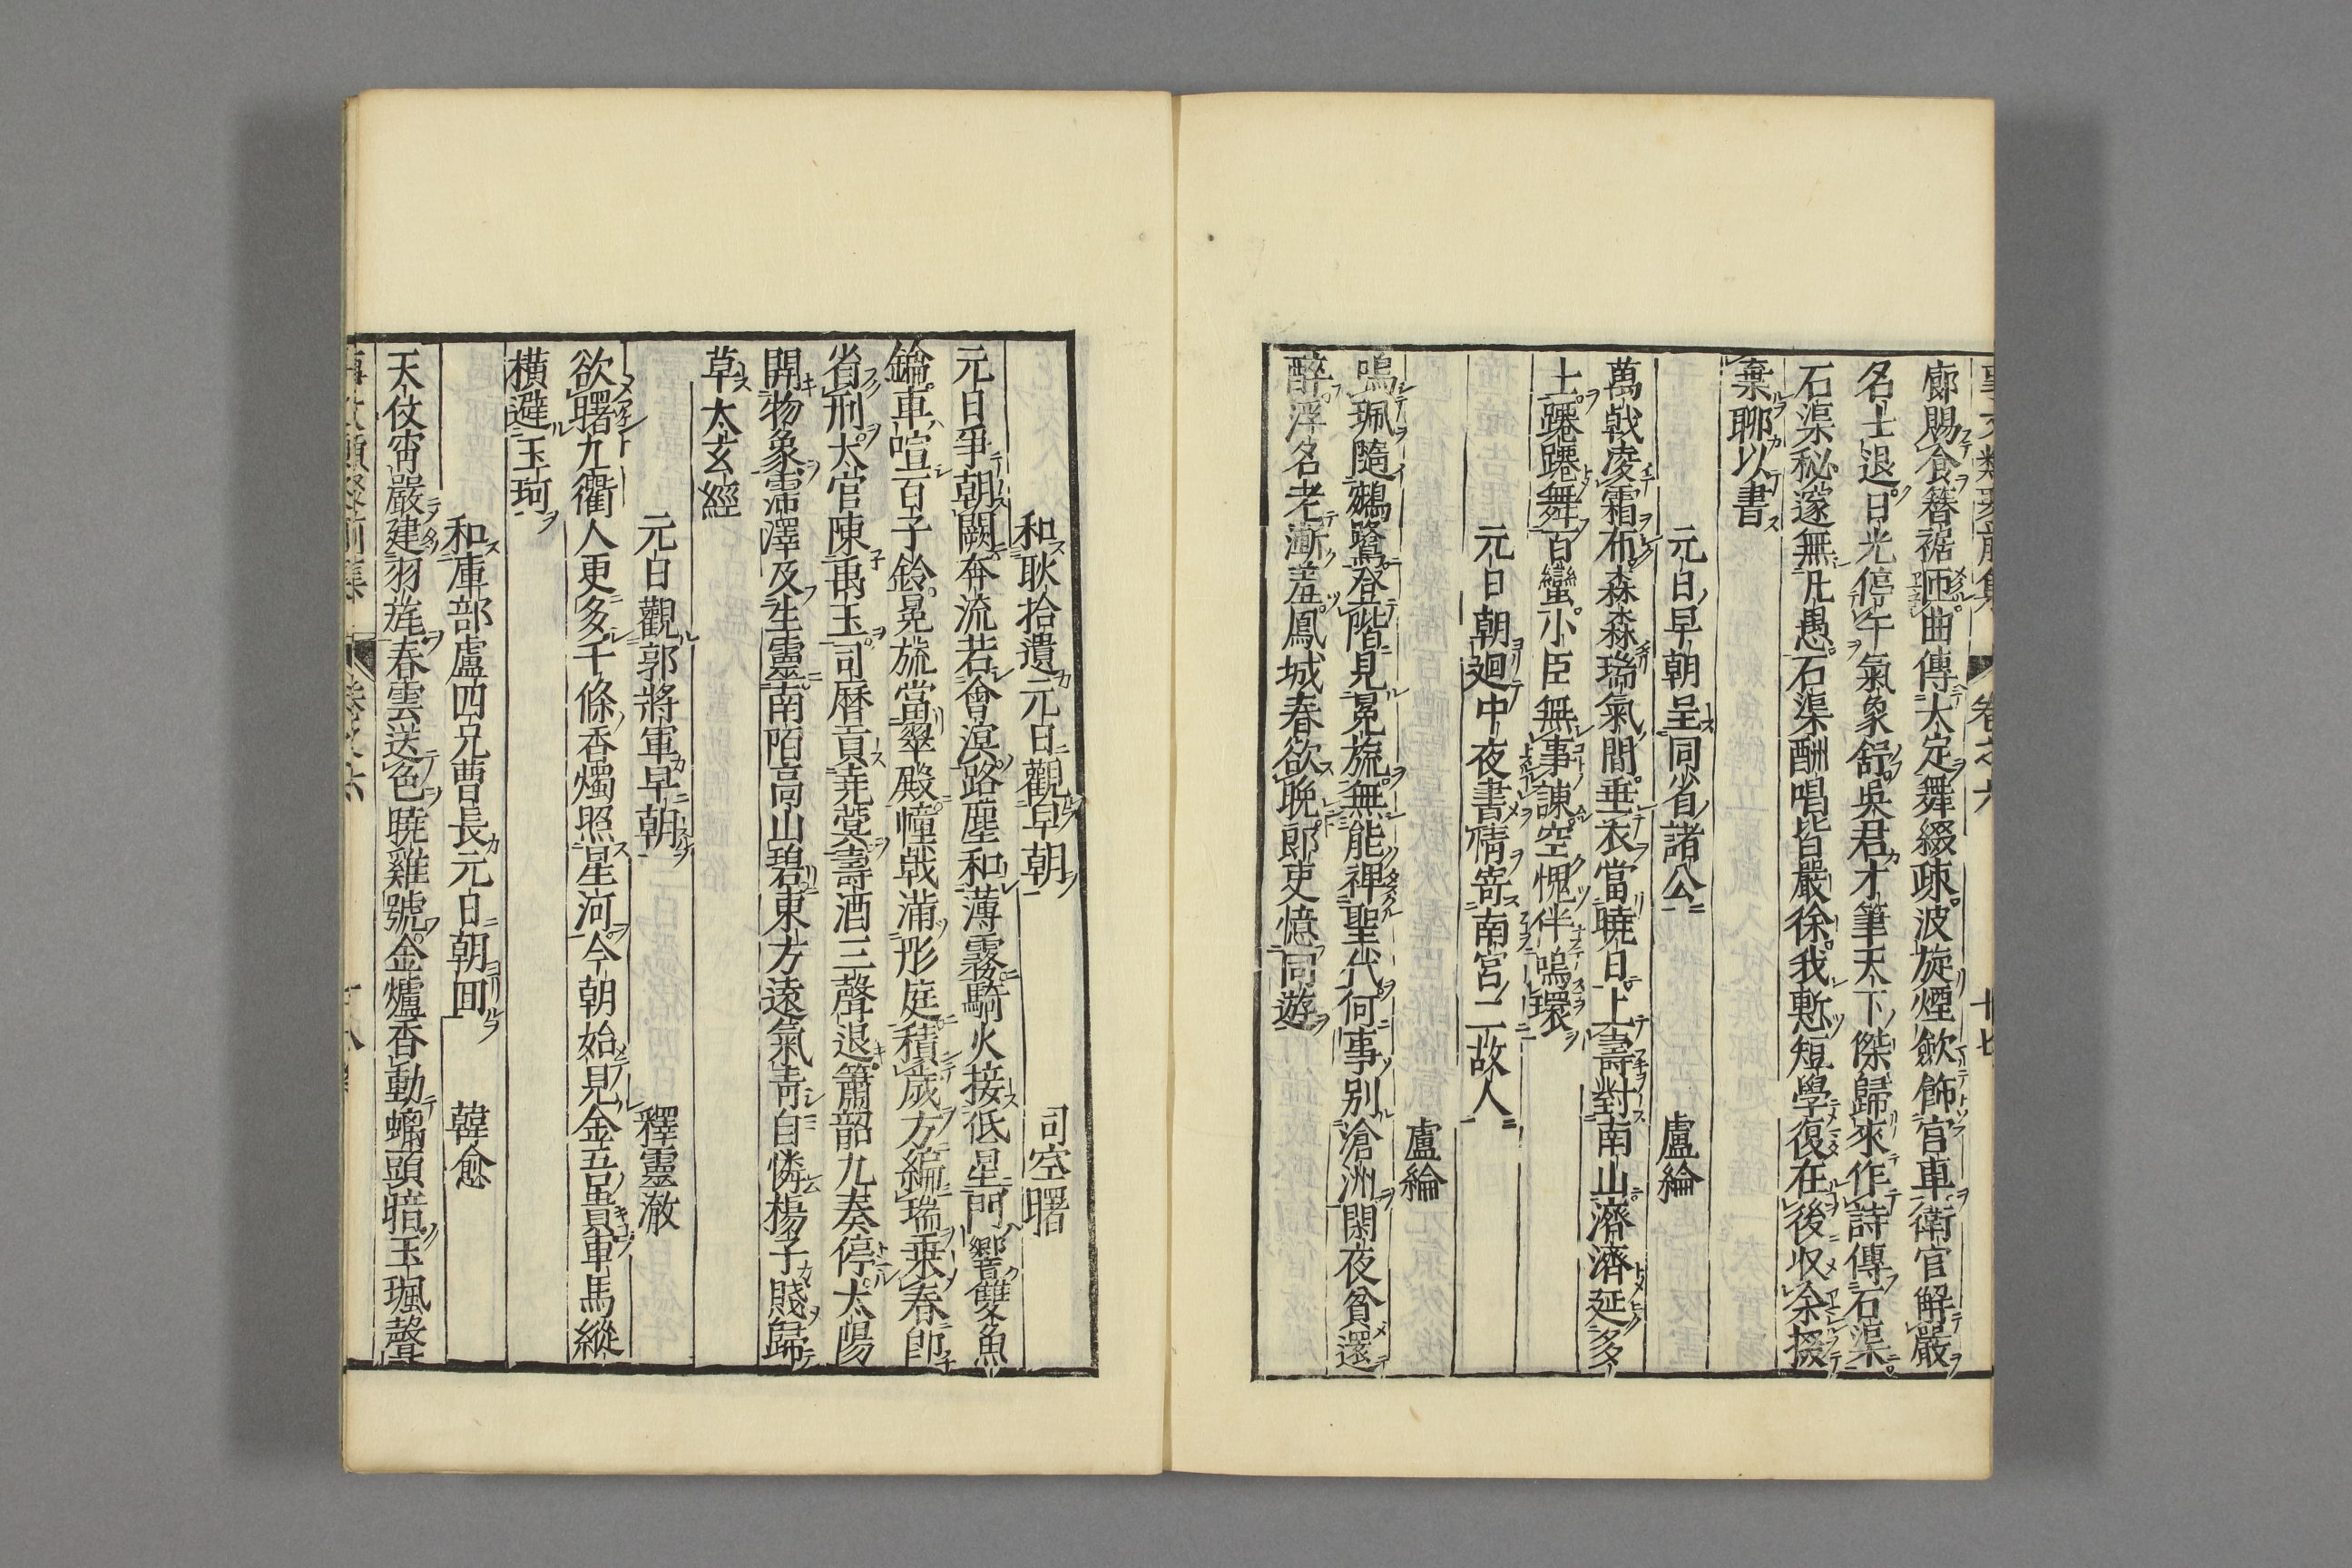 事文類聚前集 卷之六 十七
廊賜食簪裾匝曲傳太定舞綴疎波旋煙歛飾宮車衛官解嚴
名士退日光停午氣象舒吳君才筆天下傑歸來作詩傳石渠
石渠秘邃無凡愚石渠酬唱皆嚴徐我慙短學復在後収余掇
棄聊以書
元日早朝呈同省諸公 盧綸
萬戟凌霜布森森瑞氣間垂衣當曉日上壽對南山濟濟延多
士躚躚舞百蠻小臣無事諫空愧伴鳴環
元日朝廻中夜書情寄南宮二故人
盧綸
鳴珮隨鵷鷺登階見冕旒無能裨聖代何事別滄洲閑夜貧還
醉浮名老漸羞鳳城春欲晚郎吏憶同遊
和耿拾遺元日觀早朝 司空曙
元日爭朝闕奔流若會溟路塵和薄霧騎火接低星門響雙魚
鑰車喧百子鈴晃旒當翠殿幢戟滿彤庭積歲方編瑞乗春卽
省刑大官陳禹玉司曆貢堯蓂壽酒三聲退簫韶九奏停太陽
開物象霈澤及生靈南陌高山碧東方遠氣靑自憐楊子賤歸
草太玄經
元日觀郭將軍早朝 釋靈澈
欲曙九衢人更多千條香燭照星河今朝始見金吾貴車馬縱
橫避玉珂
和庫部盧四兄曹長元日朝回 韓愈
天仗宵嚴建羽旄春雲送色曉雞號金爐香動螭頭暗玉珮聲
事文類聚前集 卷之六 十八